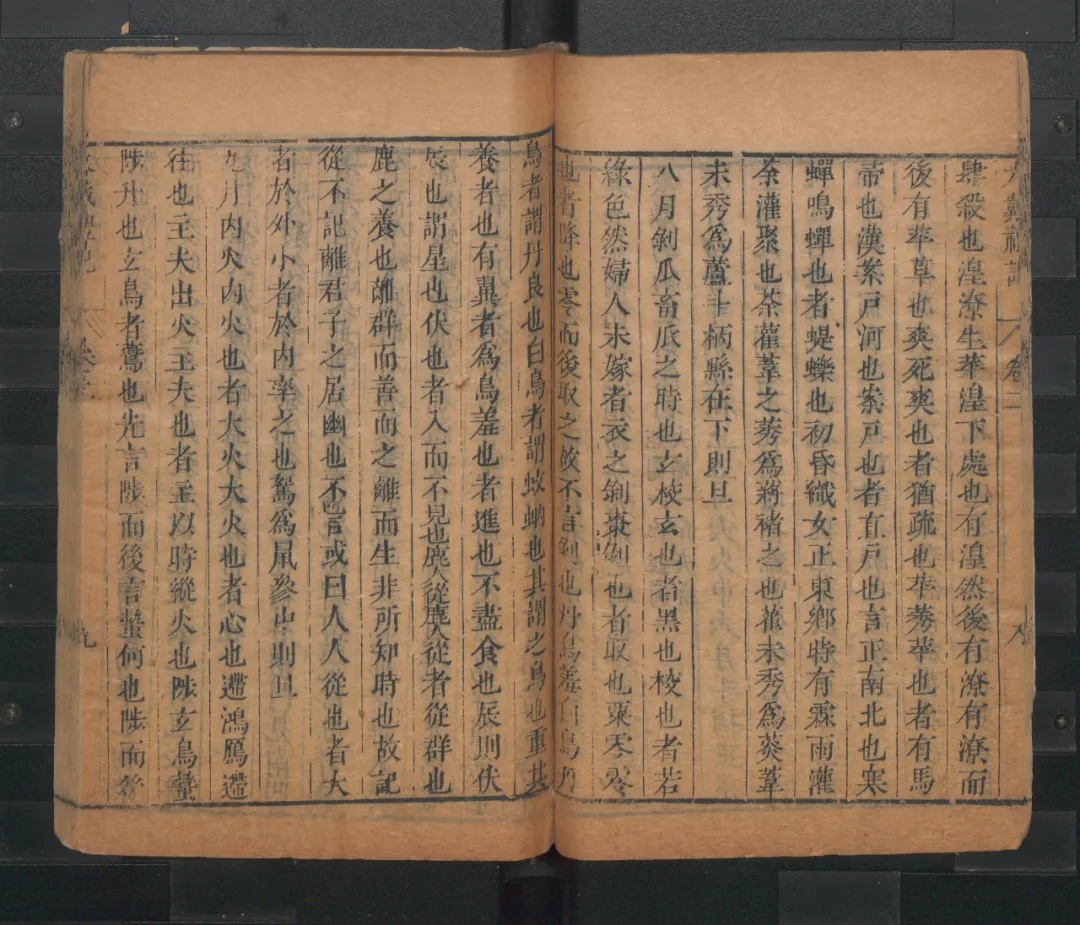 大戴禮記 卷二 八
肆殺也湟潦生苹湟下處也有湟然後有潦有潦而
後有苹草也爽死爽也者猶疏也苹莠苹也者有馬
帚也漢案戶河也案戶也者直戶也言正南北也寒
蟬鳴蟬也者蝭蠑也初昏織女正東鄉時有霖雨灌
荼灌聚也荼雚葦之莠爲蔣褚之也雚未秀爲菼葦
未秀爲蘆斗柄縣在下則旦
八月剝瓜畜瓜之時也玄校玄也者黑也校也者若
綠色然婦人未嫁者衣之剝棗剝也者取也栗零零
也者降也零而後取之故不言剝也丹鳥羞白鳥丹
鳥者謂丹良也白鳥者謂蚊蚋也其謂之鳥也重其
養者也有翼者爲鳥羞也者進也不盡食也辰則伏
辰也謂星也伏也者入而不見也鹿人從鹿人從者從群也
鹿之養也離群而善而之離而生非所知時也故記
從不記離君子之居幽也不言或曰人人從也者大
者於外小者於內率之也駕爲鼠參中則旦
九月內火內火也者大火大火也者心也遰鴻鴈遰
往也主夫出火主夫也者主以時縱火也陟玄鳥蟄
陟升也玄鳥者鷰也先言陟而後言蟄何也陟而後
大戴禮記 卷二 九